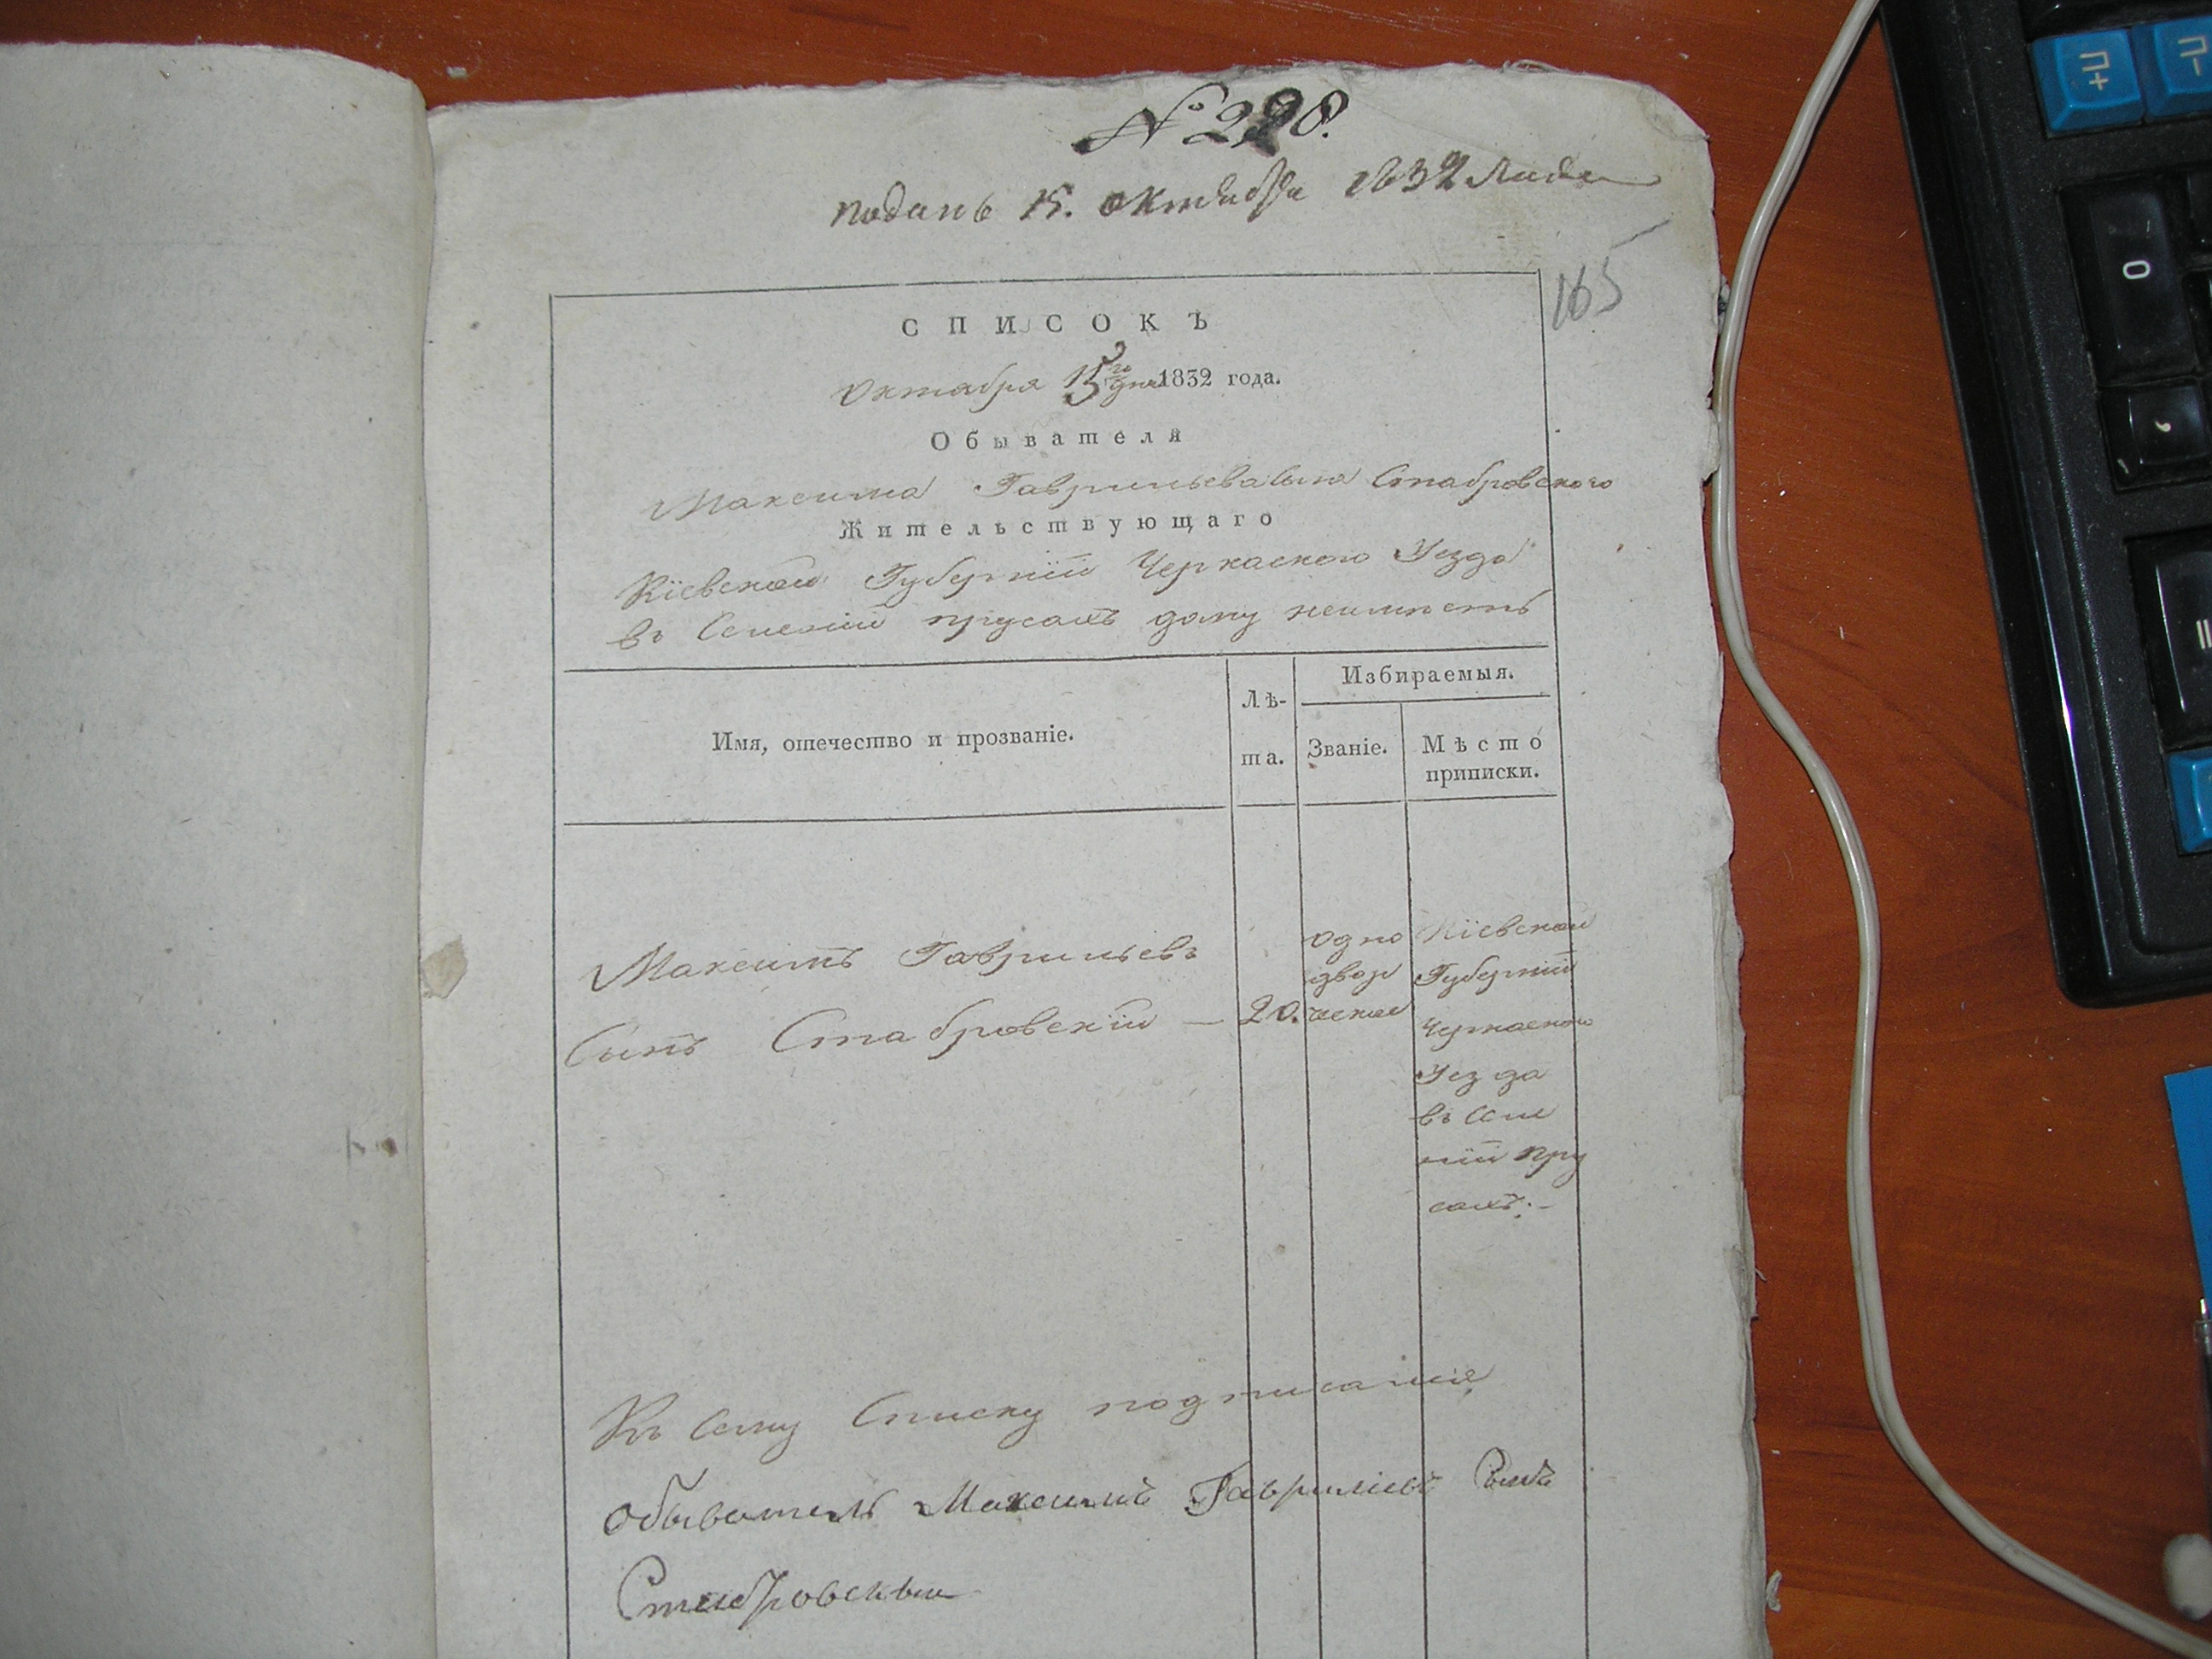 № 228.
поданъ 15. октября 1832 года
165
СПИСОКЪ
Октября 15го дня 1832 года.
Обывателя
Максима Гаврильева Сына Стабровского
Жительствующаго
Кіевской Губерніи Черкаского Уезда
въ Селеніи прусахъ дому неимѣетъ
Имя, отечество и прозваніе.
Лѣ-
та.
Избираемыя.
Званіе.
Мѣсто
приписки.
Максимъ Гаврильевъ
Сынъ Стабровскій — 20.
одно
двор
ческое
Кіевской
Губерніи
Черкаского
Уезда
въ Селе
ніи Пру
сахъ.-
Къ Сему Списку подписался
обыватель Максимъ Гавриліевъ Сынъ
Стабровскыи
+П
-П
0
,
=